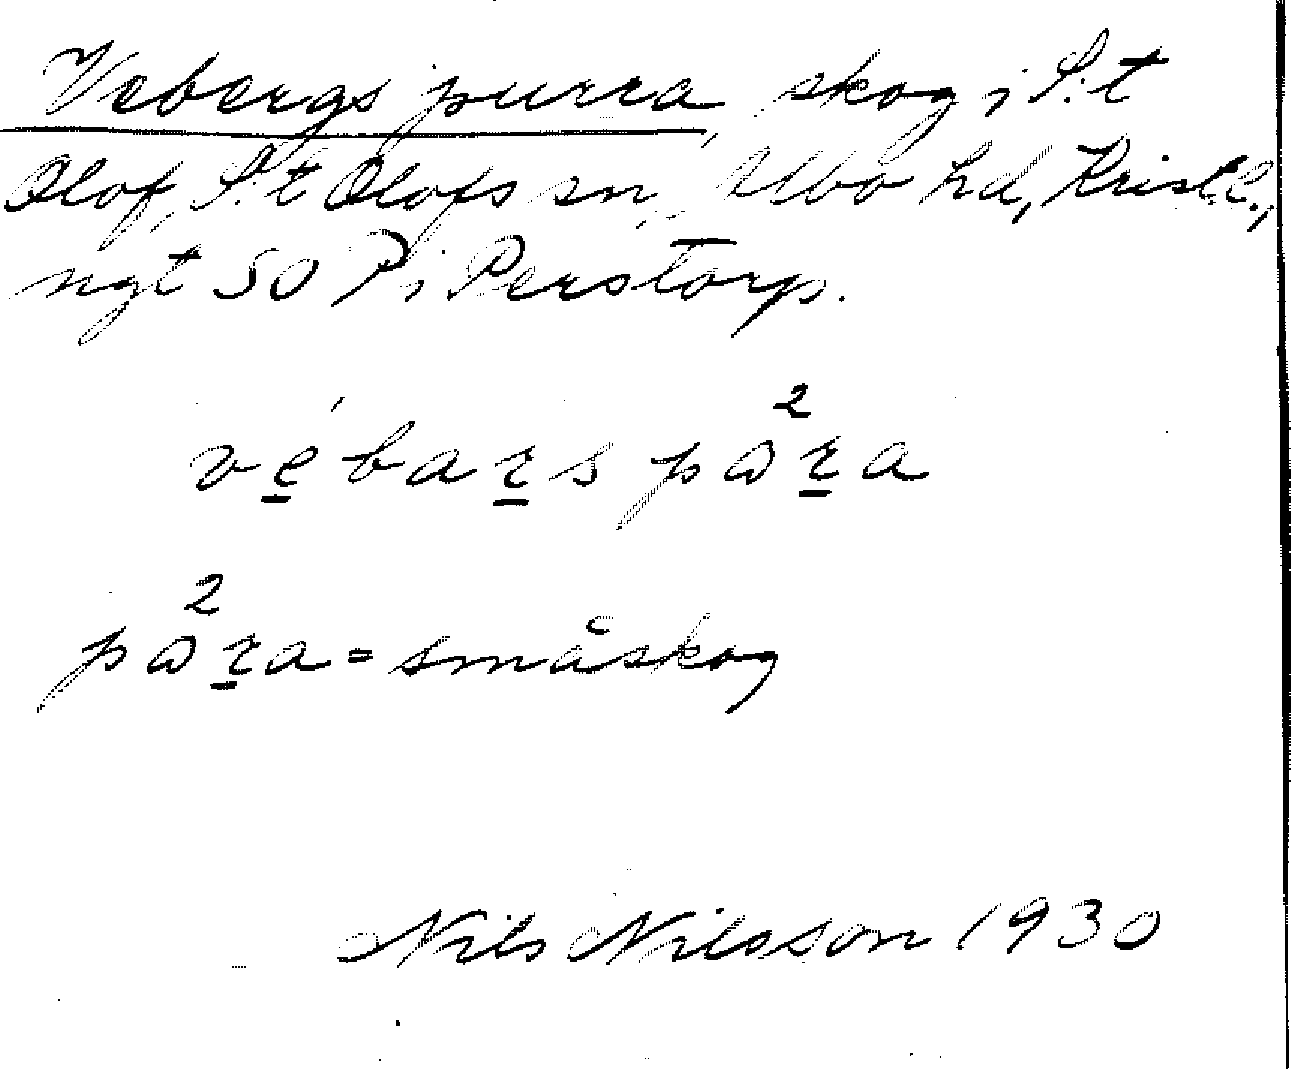 Vebergs purra, skog i S:t
Olof, S:t Olofs sn, Albo hd, Krist.l.,
ngt SO P i Perstorp.
vę́baꞅs pa²ꞅa
pa²ꞅa = småskog
Nils Nilsson 1930